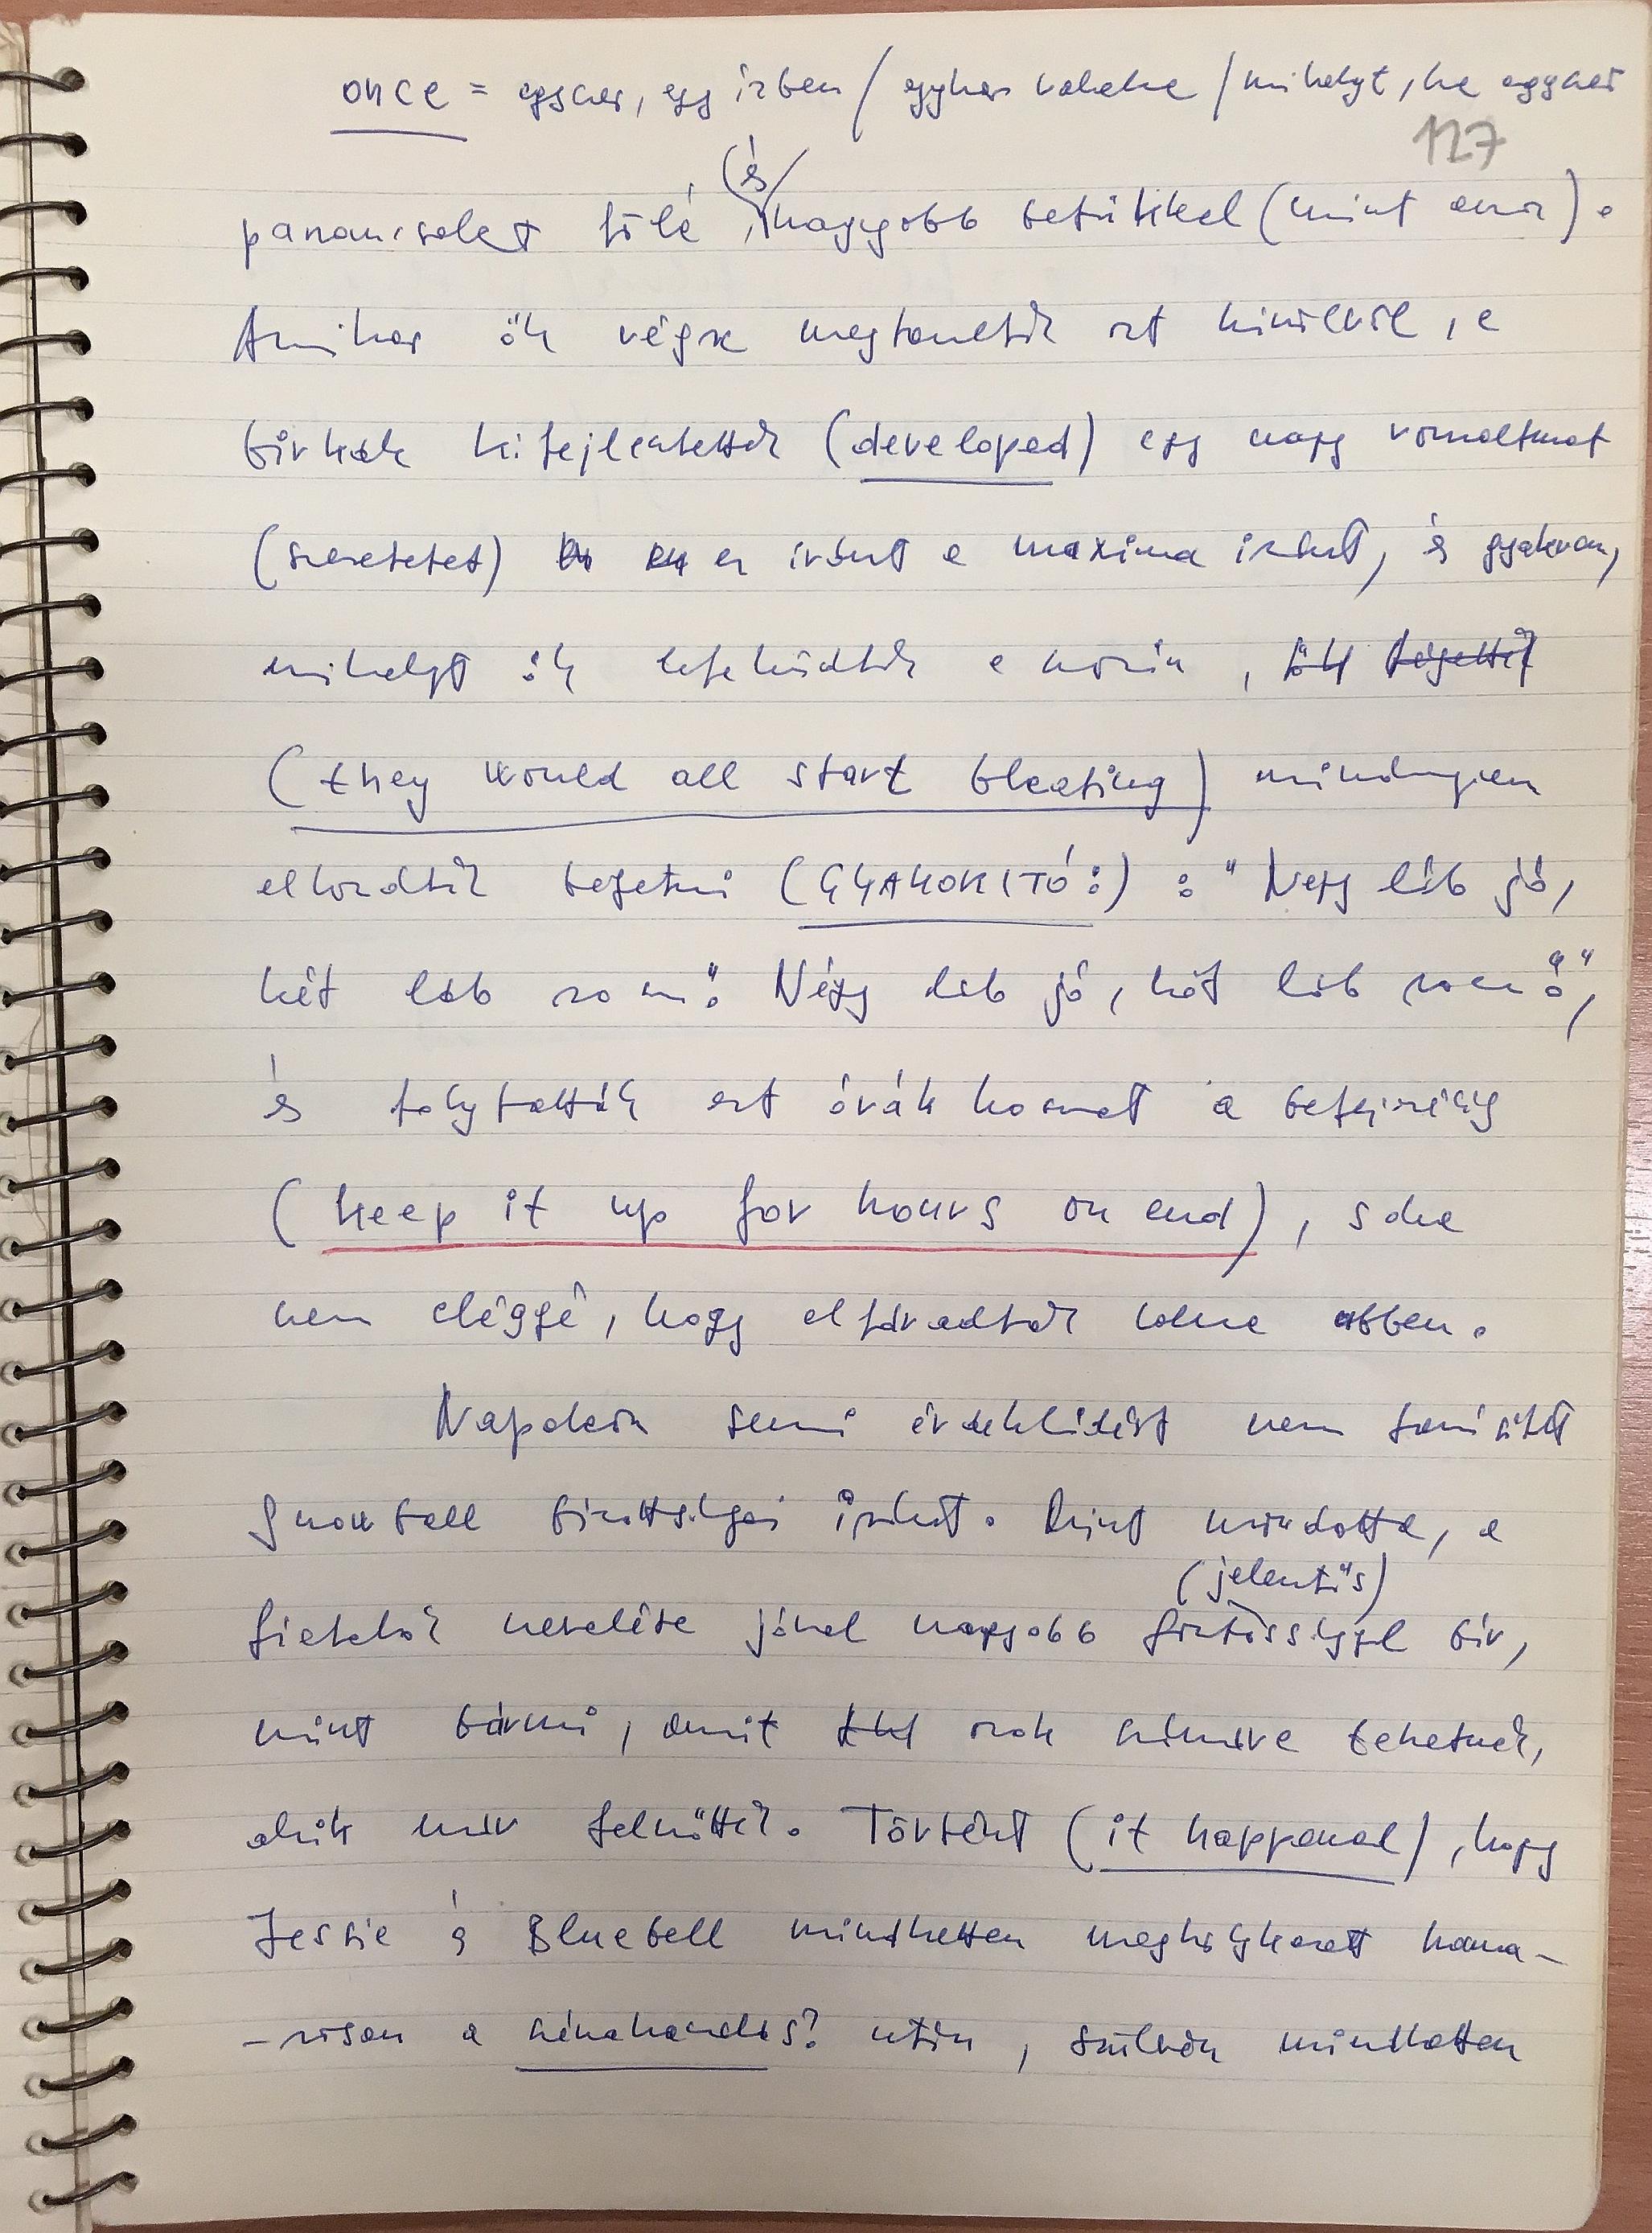 once = egyszer, egy ízben / egykor valaha / mihelyt, ha egyszer
127
(és)
parancsolat fölé, nagyobb betűkkel (mint arra).
Amikor ők végre megtanulták ezt kívülről, a
birkák kifejlesztettek (developed) egy nagy vonzalmat
(szeretetet) ez iránt a maxima iránt, és gyakran,
mihelyt ők lefeküdtek a mezőn, ők bégettek
(they would all start bleating) mindnyájan
elkezdtek bégetni (GYAKORÍTÓ!) : "Négy láb jó,
két láb rossz! Négy láb jó, két láb rossz!",
és folytatták ezt órák hosszat a befejezésig
(keep it up for hours on end), soha
nem eléggé, hogy elfáradtak volna abban.
Napoleon semmi érdeklődést nem tanúsított
Snowball bizottságai iránt. Mint mondotta, a
(jelentős)
fiatalok nevelése jóval nagyobb fontossággal bír,
mint bármi, amit azok számára tehetnek,
akik már felnőttek. Történt (it happened), hogy
Jessie és Bluebell mindketten megkölykezett hama-
-rosan a szénakazalos? után, szülvén mindketten